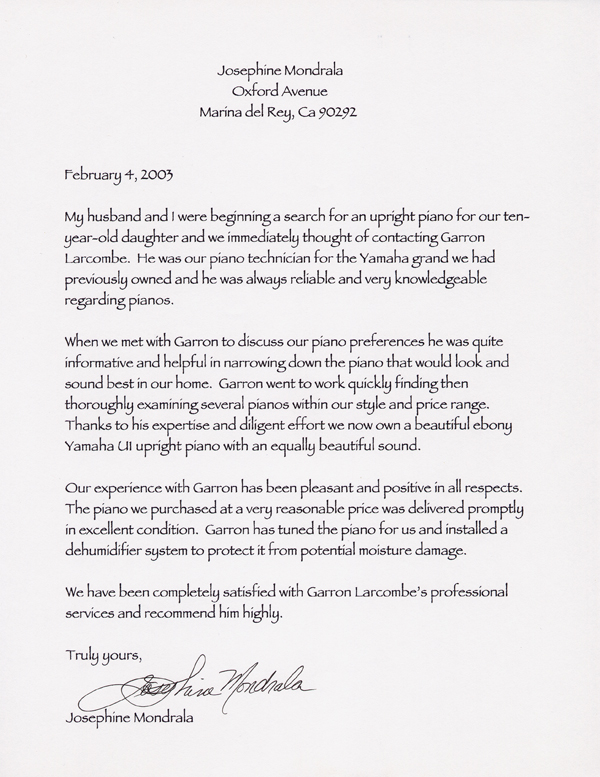 Josephine Mondrala
Oxford Avenue
Marina del Rey, Ca 90292
February 4, 2003
My husband and I were beginning a search for an upright piano for our ten-
year-old daughter and we immediately thought of contacting Garron
Larcombe.  He was our piano technician for the Yamaha grand we had
previously owned and he was always reliable and very knowledgeable
regarding pianos.
When we met with Garron to discuss our piano preferences he was quite
informative and helpful in narrowing down the piano that would look and
sound best in our home.  Garron went to work quickly finding then
thoroughly examining several pianos within our style and price range.
Thanks to his expertise and diligent effort we now own a beautiful ebony
Yamaha U1 upright piano with an equally beautiful sound.
Our experience with Garron has been pleasant and positive in all respects.
The piano we purchased at a very reasonable price was delivered promptly
in excellent condition.  Garron has tuned the piano for us and installed a
dehumidifier system to protect it from potential moisture damage.
We have been completely satisfied with Garron Larcombe's professional
services and recommend him highly.
Truly yours,
Josephine Mondrala
Josephine Mondrala